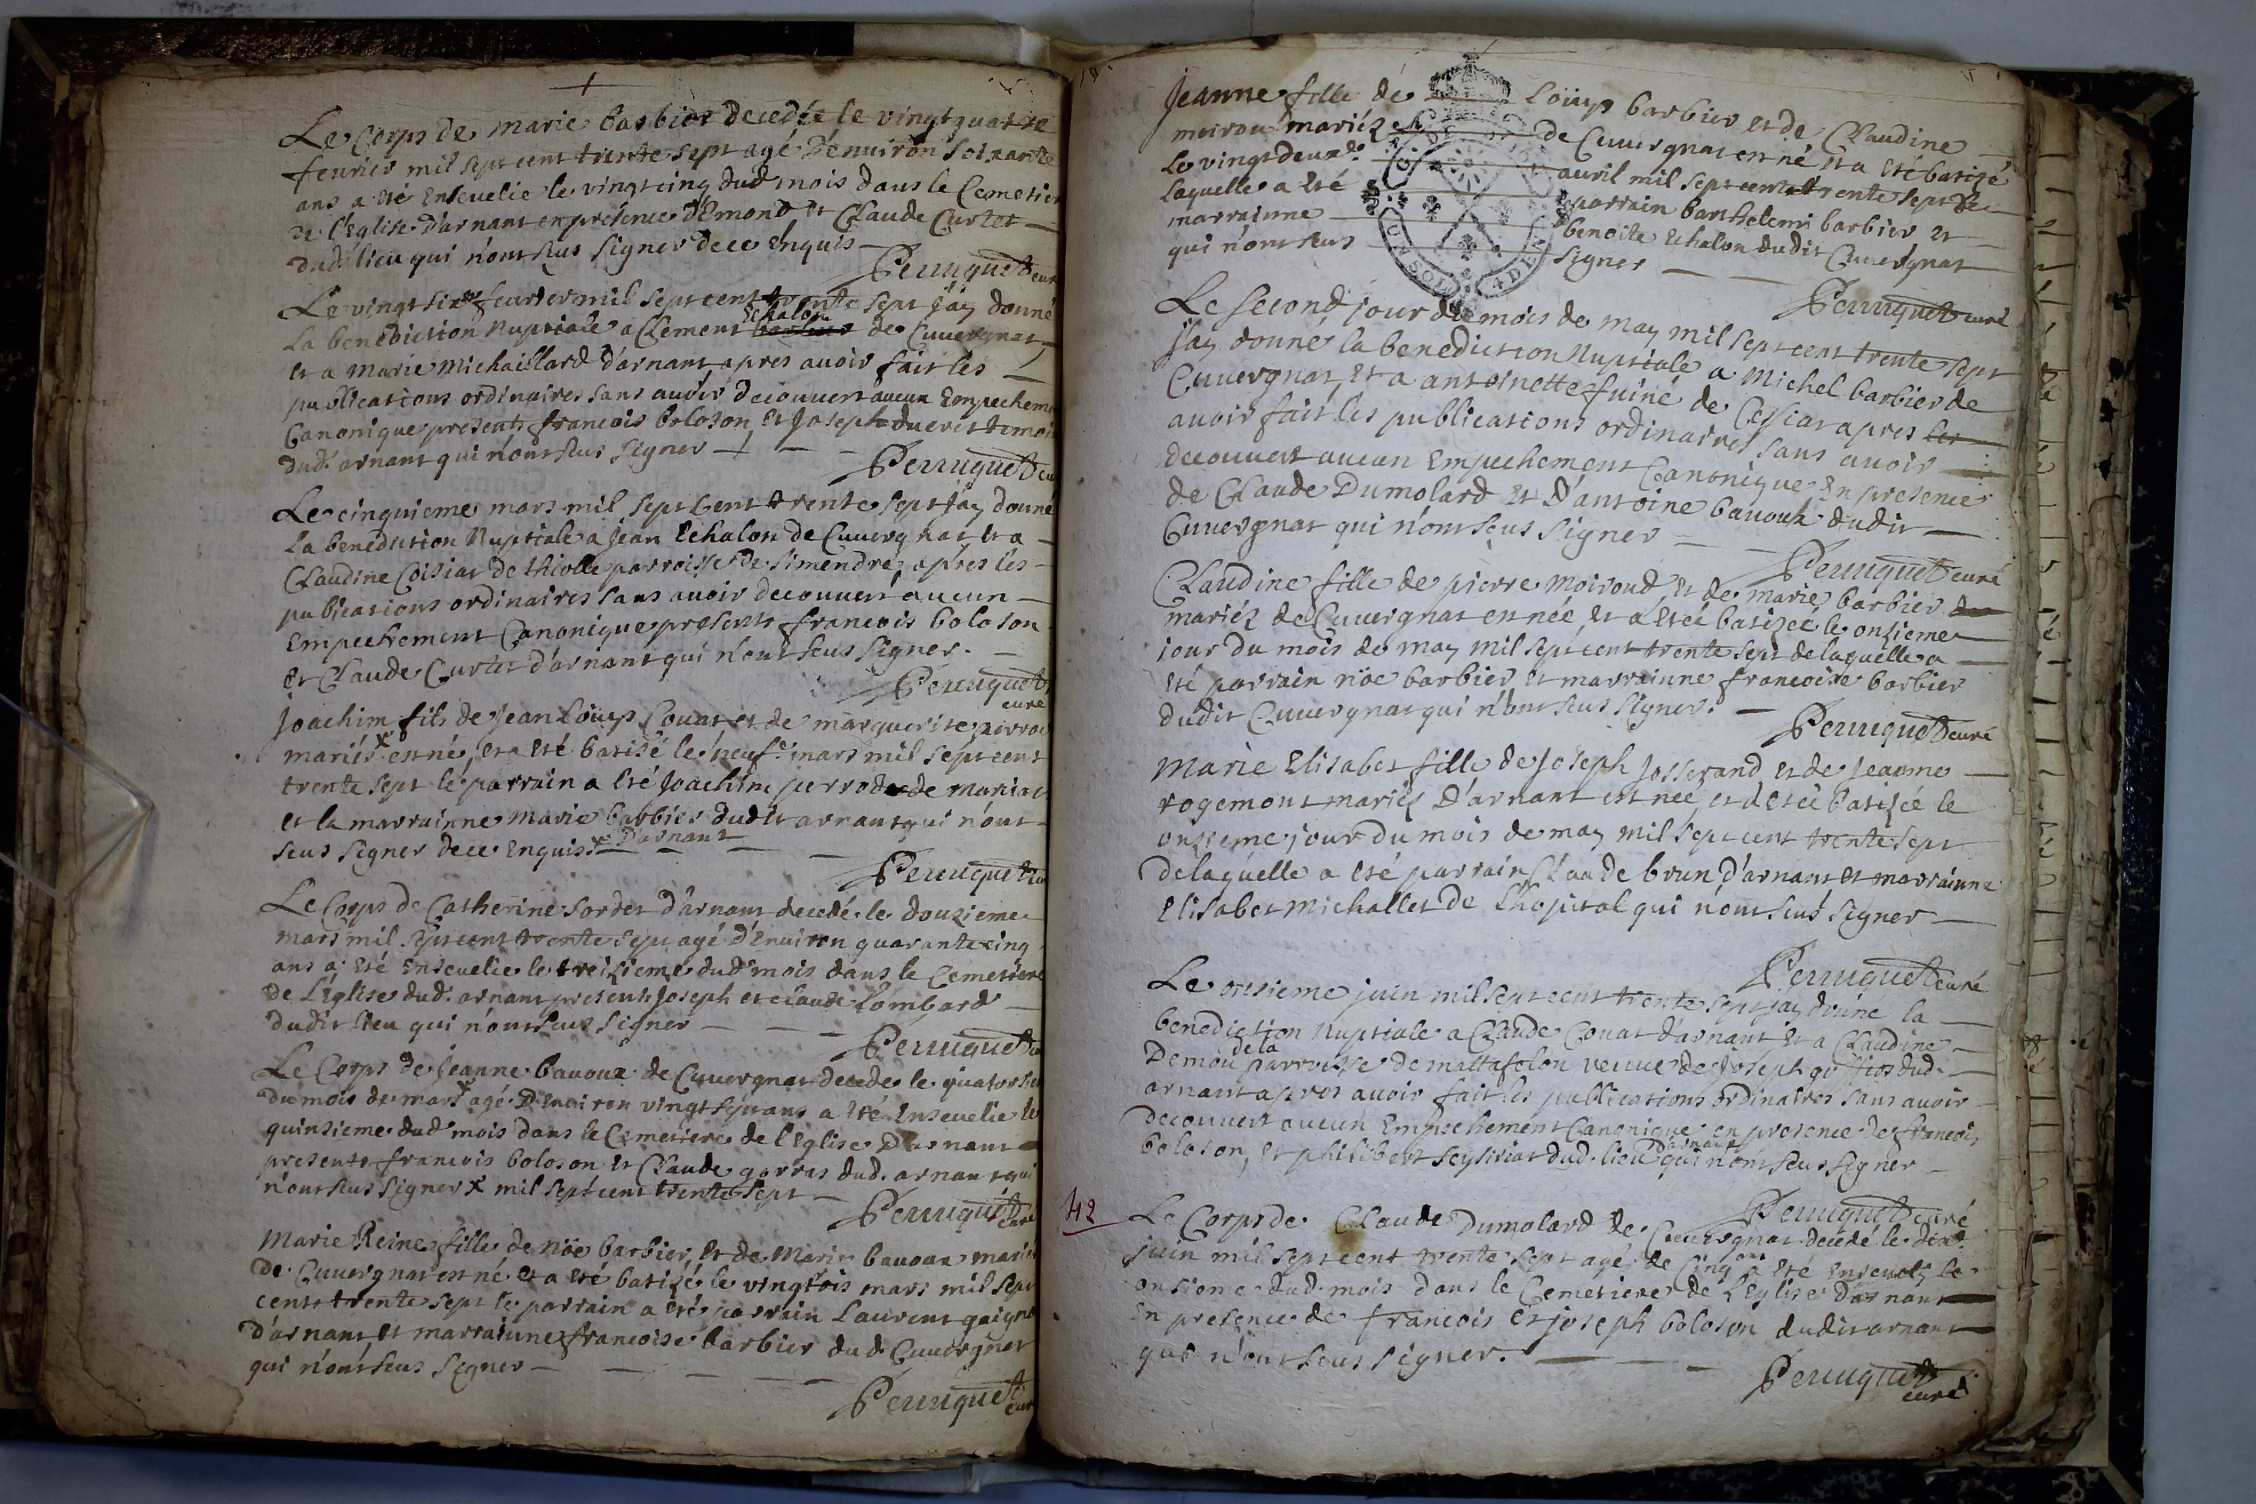 Le Corps de marie barbier decedée le vingt quatre
fevrier mil sept cent trente sept agé d'environ soixante
ans a eté ensevelie le vingt cinq dud mois dans le Cemetier
de l'Eglise d'arnant en présence d'Emond et Claude Curtet
dud. lieu qui n'ont sus signer de ce enquis
Perruquet curé
Le vingt six fevrier mil sept cent trente sept j'ay donné
la benediction Nuptiale a Clement Echalon de Cuvergnat
et a marie Michaillard d'arnant apres avoir fait les
publications ordinaires sans avoir decouvert aucun Empecheme
Canonique presents francois boloson et Joseph temoi
dud. arnant qui n'ont sus signer
Perruquet cu
Le cinquieme mars mil sept cent trente sept j'ay donné
la benediction Nuptiale a jean Echalon de Cuvergnat et a
Claudine Coisiat de thiolle parroisse de simendre, apres les
publications ordinaires sans avoir decouvert aucun
Empechement Canonique presents francois boloson
et Claude Curtet d'arnant qui n'ont sus signer.
Perruquet
curé
Joachim fils de Jean Louys Couat et de marguerite
mariés x est né, et a eté batisé le neuf.e mars mil sept cent
trente sept le parrain a eté Joachim de
et la marrainne marie barbier dudit arnant qui n'ont
seus signer de ce enquis x D'arnant
Perruquet cu
Le Corps de Catherine sordet d'arnant decedé le douzieme
mars mil sept cent trente sept agé d'environ quarante cinq
ans a eté ensevelie le treizieme dud. mois dans le Cemetiere
de l'Eglise dud. arnant presents Joseph et claude Lombard
dudit lieu qui n'ont seus signer
Perruquet cu
Le Corps de Jeanne bavoux de Cuvergnat decede le quatorze
du mois de mars x agé d'environ vingt sept ans a eté Ensevelie le
quinsieme dud mois dans le Cemetiere de l'Eglise D'arnant
presents francois boloson et Claude gorras dud. arnant qui
n'ont seus signer x mil sept cent trente sept
Perruquet curé
Marie Reine fille de Nöe barbier, et de Marie bavoux mariez
de Cuvergnat est né et a eté batizé le vingtrois mars mil sept
cent trente sept le parrain a eté parrain Laurent
d'arnant et marrainne francoise barbier dud. Cuvergnat
qui n'ont seus signer
Perruquet cur
Jeanne fille de Loüys barbier et de Claudine
moirou mariéz de Cuvergnat est né et a eté batizé
le vingt deux.e avril mil sept cent trente sept de
laquelle a eté parrain barthelemi barbier et
marrainne benoite Echalon dudit Cuvergnat
qui n'ont seus signer
Perruquet curé
Le second jour du mois de may mil sept cent trente sept
j'ay donné la benediction Nuptiale a Michel barbier de
Cuvergnat, et a antoinette fuiné de Cessiat apres les
avoir fait les publications ordinaires sans avoir
decouvert aucun Empechement Canonique En presence
de Claude Dumolard et d'antoine bavoux dudit
Cuvergnat qui n'ont seus signer
Perruquet curé
Claudine fille de pierre Moiroud et de marie barbier
mariéz de Cuvergnat est née, et a eteé batizée le onsieme
jour du mois de may mil sept cent trente sept de laquelle a
eté parrain nöe barbier et marrainne francoise barbier
dudit Cuvergnat qui n'ont seus signer.
Perruquet curé
Marie Elisabet fille de Joseph Josserand et de Jeanne
rogemont mariéz d'arnant est neé, et a eteé batizée le
onsieme jour du mois de may mil sept cent trente sept
de laquelle a eté parrain Claude brun d'arnant et marrainne
Elisabet Michallet de l'hopital qui n'ont seus signer
Perruquet curé
Le onsieme juin mil sept cent trente sept j'ay donné la
benediction Nuptiale a Claude Couat d'arnant et a Claudine
Demou de la parroisse de mattafelon veuve de Joseph dud.
arnant apres avoir fait les publications ordinaires sans avoir
decouvert aucun Empechement Canonique en presence de francois
boloson, et philibert seysiriat dud. lieu D'arnant qui n'ont seus signer
Perruquet curé
42
Le Corps de Claude Dumolard de Cuvergnat decedé le dix.e
juin mil sept cent trente sept agé de Cinq ans a eté ensevely le
onsieme dud. mois dans le Cemetiere de l'Eglise d'arnant
En presence de francois et joseph boloson dudit arnant
qui n'ont seus signer.
Perruquet
curé